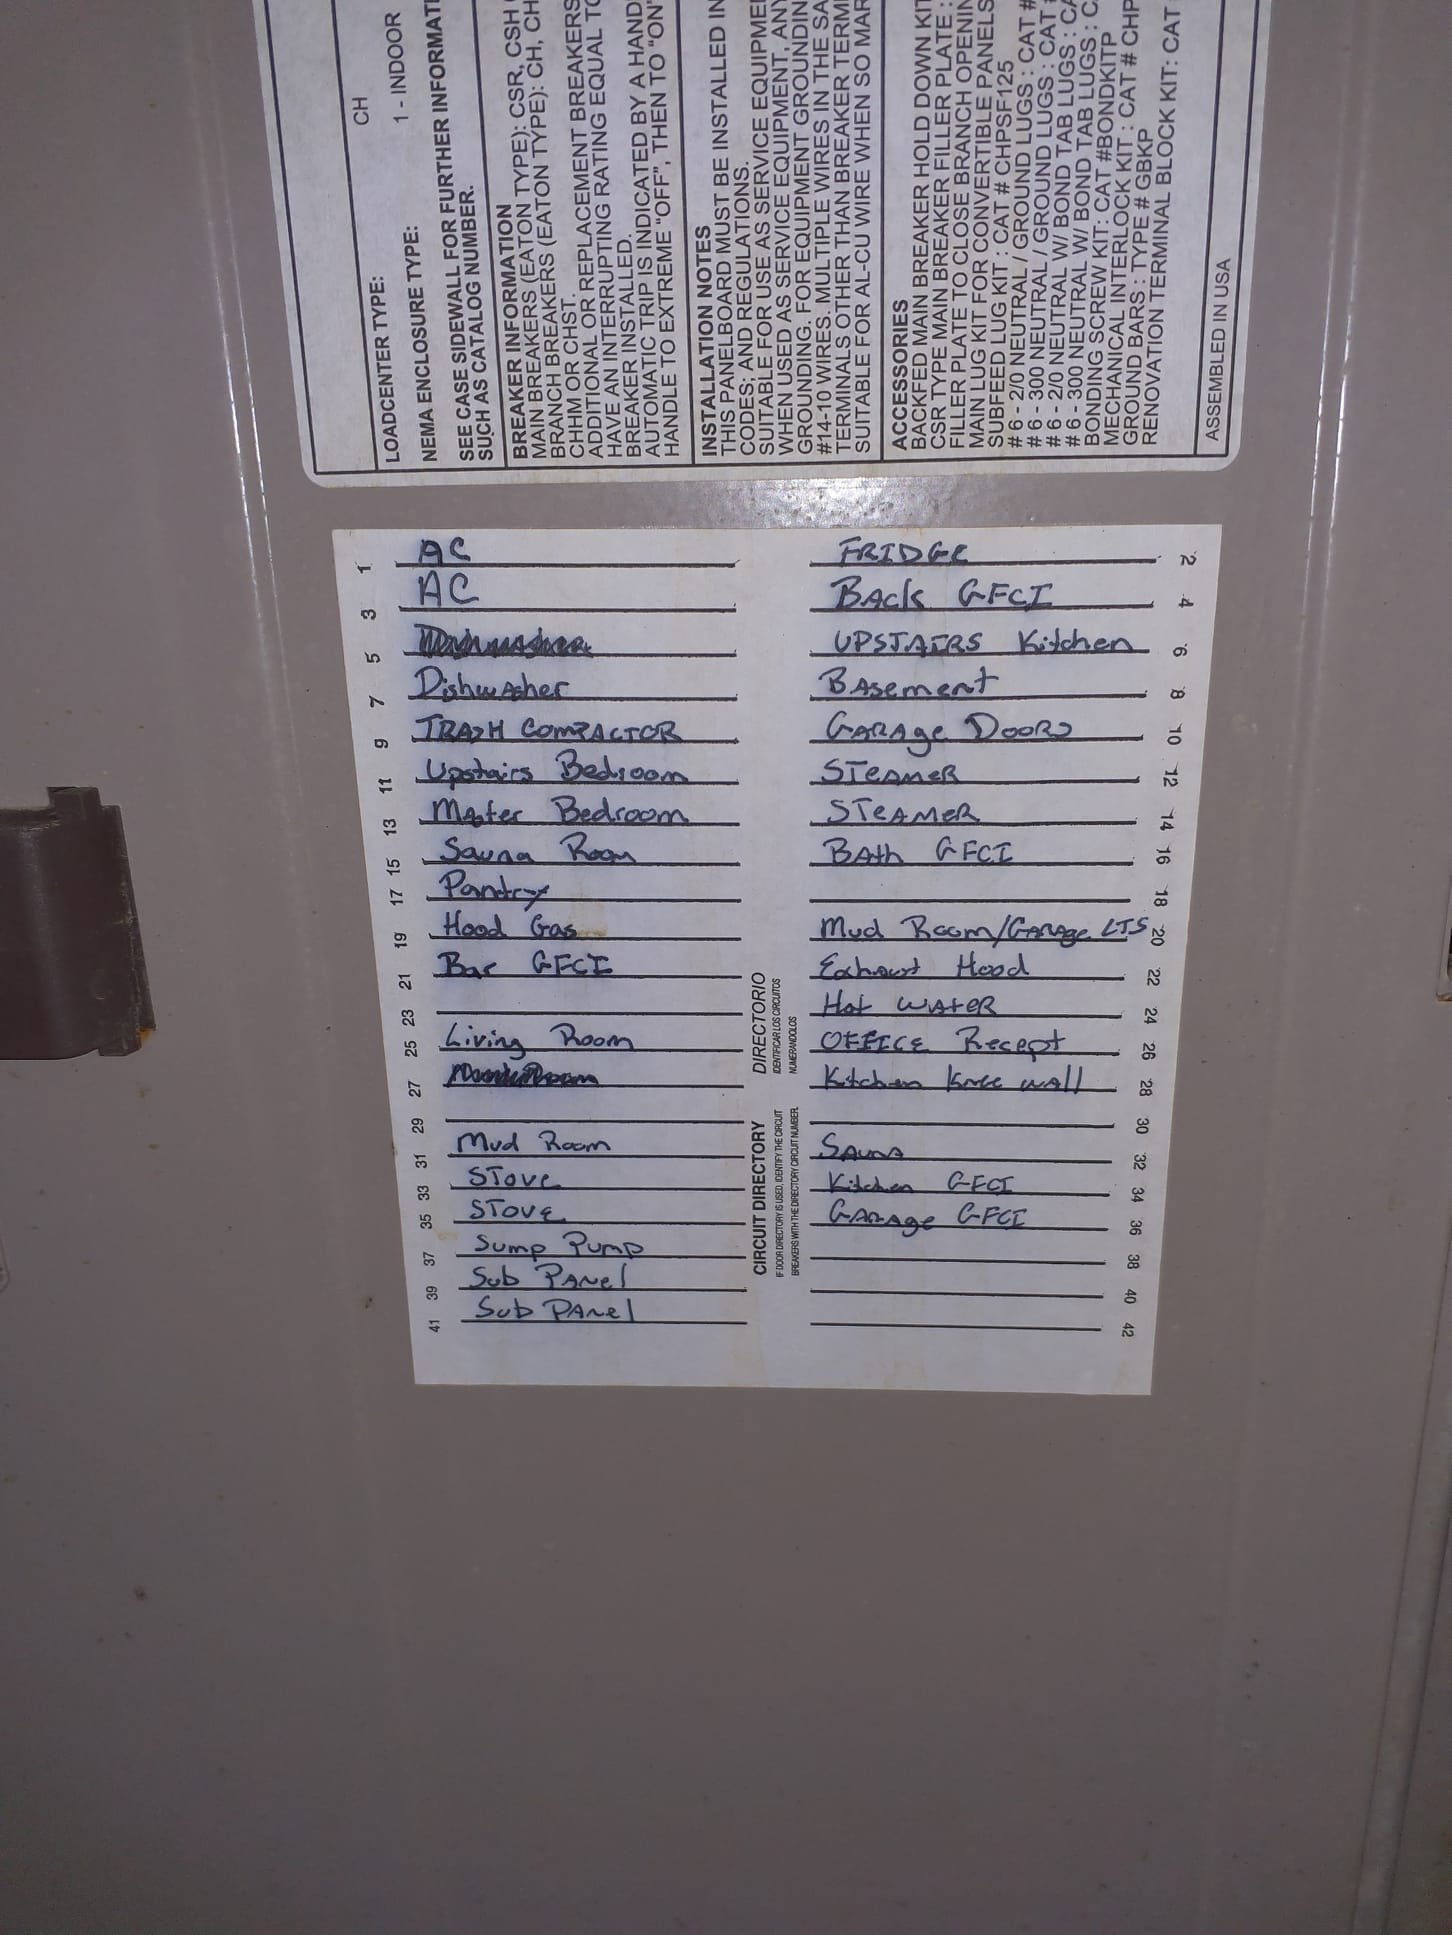 CH
LOADCENTER TYPE:
1 - INDOOR
NEMA ENCLOSURE TYPE:
SEE CASE SIDEWALL FOR FURTHER
SUCH AS CATALOG NUMBER.
BREAKER INFORMATION
MAIN BREAKERS (EATON TYPE): CSR, CSH
BRANCH BREAKERS (EATON TYPE): CH, CH
CHHM OR CHST.
ADDITIONAL OR REPLACEMENT BREAKERS
HAVE AN INTERRUPTING RATING EQUAL TO
BREAKER INSTALLED.
AUTOMATIC TRIP IS INDICATED BY A HAND
HANDLE TO EXTREME “OFF”, THEN TO “ON”
INSTALLATION NOTES
THIS PANELBOARD MUST BE INSTALLED IN
CODES; AND REGULATIONS.
SUITABLE FOR USE AS SERVICE
WHEN USED AS SERVICE EQUIPMENT, ANY
GROUNDING. FOR EQUIPMENT
#14-10 WIRES. MULTIPLE WIRES IN THE SA
TERMINALS OTHER THAN BREAKER TERM
SUITABLE FOR AL-CU WIRE WHEN SO MAR
ACCESSORIES
BACKFED MAIN BREAKER HOLD DOWN KIT
CSR TYPE MAIN BREAKER FILLER PLATE :
FILLER PLATE TO CLOSE BRANCH
MAIN LUG KIT FOR CONVERTIBLE PANELS
SUBFEED LUG KIT : CAT # CHPSF125
# 6 - 2/0 NEUTRAL / GROUND LUGS : CAT #
# 6 - 300 NEUTRAL / GROUND LUGS : CAT #
# 6 - 2/0 NEUTRAL W/ BOND TAB LUGS : CA
# 6 - 300 NEUTRAL W/ BOND TAB LUGS : CA
BONDING SCREW KIT: CAT #BONDKITP
MECHANICAL INTERLOCK KIT : CAT # CHP
GROUND BARS : TYPE # GBKP
RENOVATION TERMINAL BLOCK KIT: CAT
ASSEMBLED IN USA
1 AC
3 AC
5
7 Dishwasher
9 TRASH COMPACTOR
11 Upstairs Bedroom
13 Master Bedroom
15 Sauna Room
17 Pantry
19 Hood Gas
21 Bar GFCI
23
25 Living Room
27
29
31 Mud Room
33 STOVE
35 STOVE
37 Sump Pump
39 Sub PANel
41 Sub PANel
DIRECTORIO
IDENTIFICAR LOS CIRCUITOS
NUMERANDOLOS
CIRCUIT DIRECTORY
IF DOOR DIRECTORY IS USED, IDENTIFY THE CIRCUIT
BREAKERS WITH THE DIRECTORY CIRCUIT NUMBER.
FRIDGE 2
BAck GFCI 4
UPSTAIRS Kitchen 6
BAsement 8
GARAge DOORS 10
STeAMeR 12
STeAMeR 14
BAth GFCI 16
18
Mud Room/GARAge LTS 20
Exhaust Hood 22
Hot WAteR 24
OFFICE Recept 26
Kitchen knee wall 28
30
SAuNA 32
Kitchen GFCI 34
GARAge GFCI 36
38
40
42